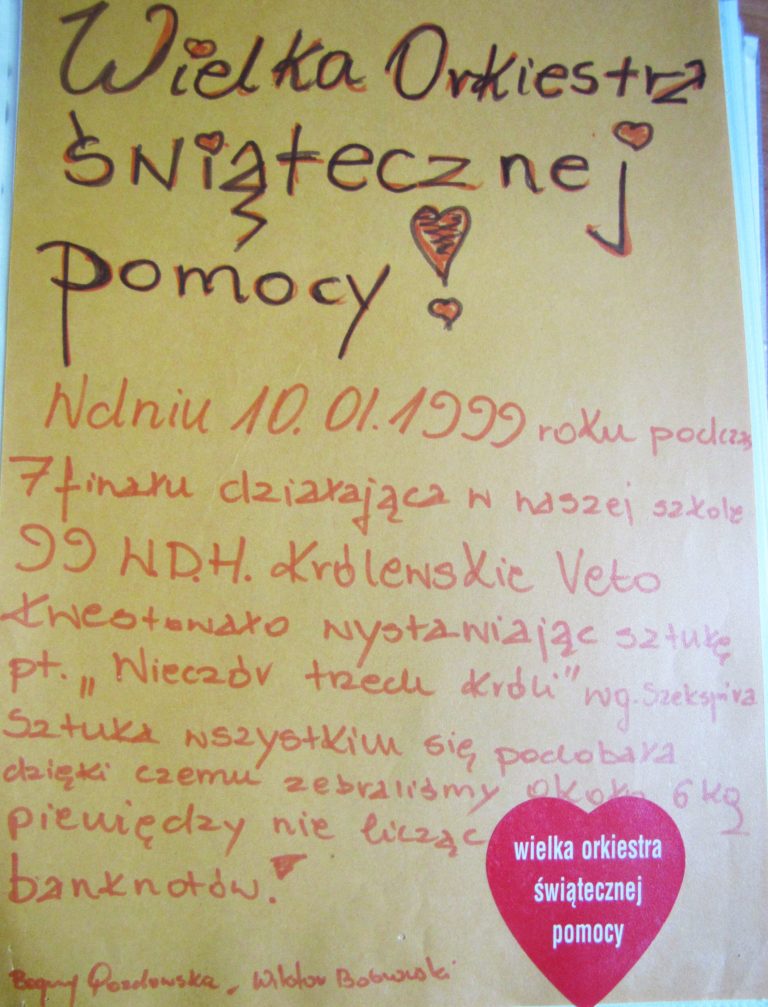 Wielka Orkiestra
świątecznej
pomocy!
W dniu 10.01.1999 roku podczas
7 finału działająca w naszej szkole
99 W.D.H. Królewskie Veto
kwestowało wystawiając sztukę
pt. „Wieczór trzech króli" wg. Szekspira
Sztuka wszystkim się podobała
dzięki czemu zebraliśmy około 6 kg
pieniędzy nie licząc
banknotów.
Wiktor Bobrowski
wielka orkiestra
świątecznej
pomocy